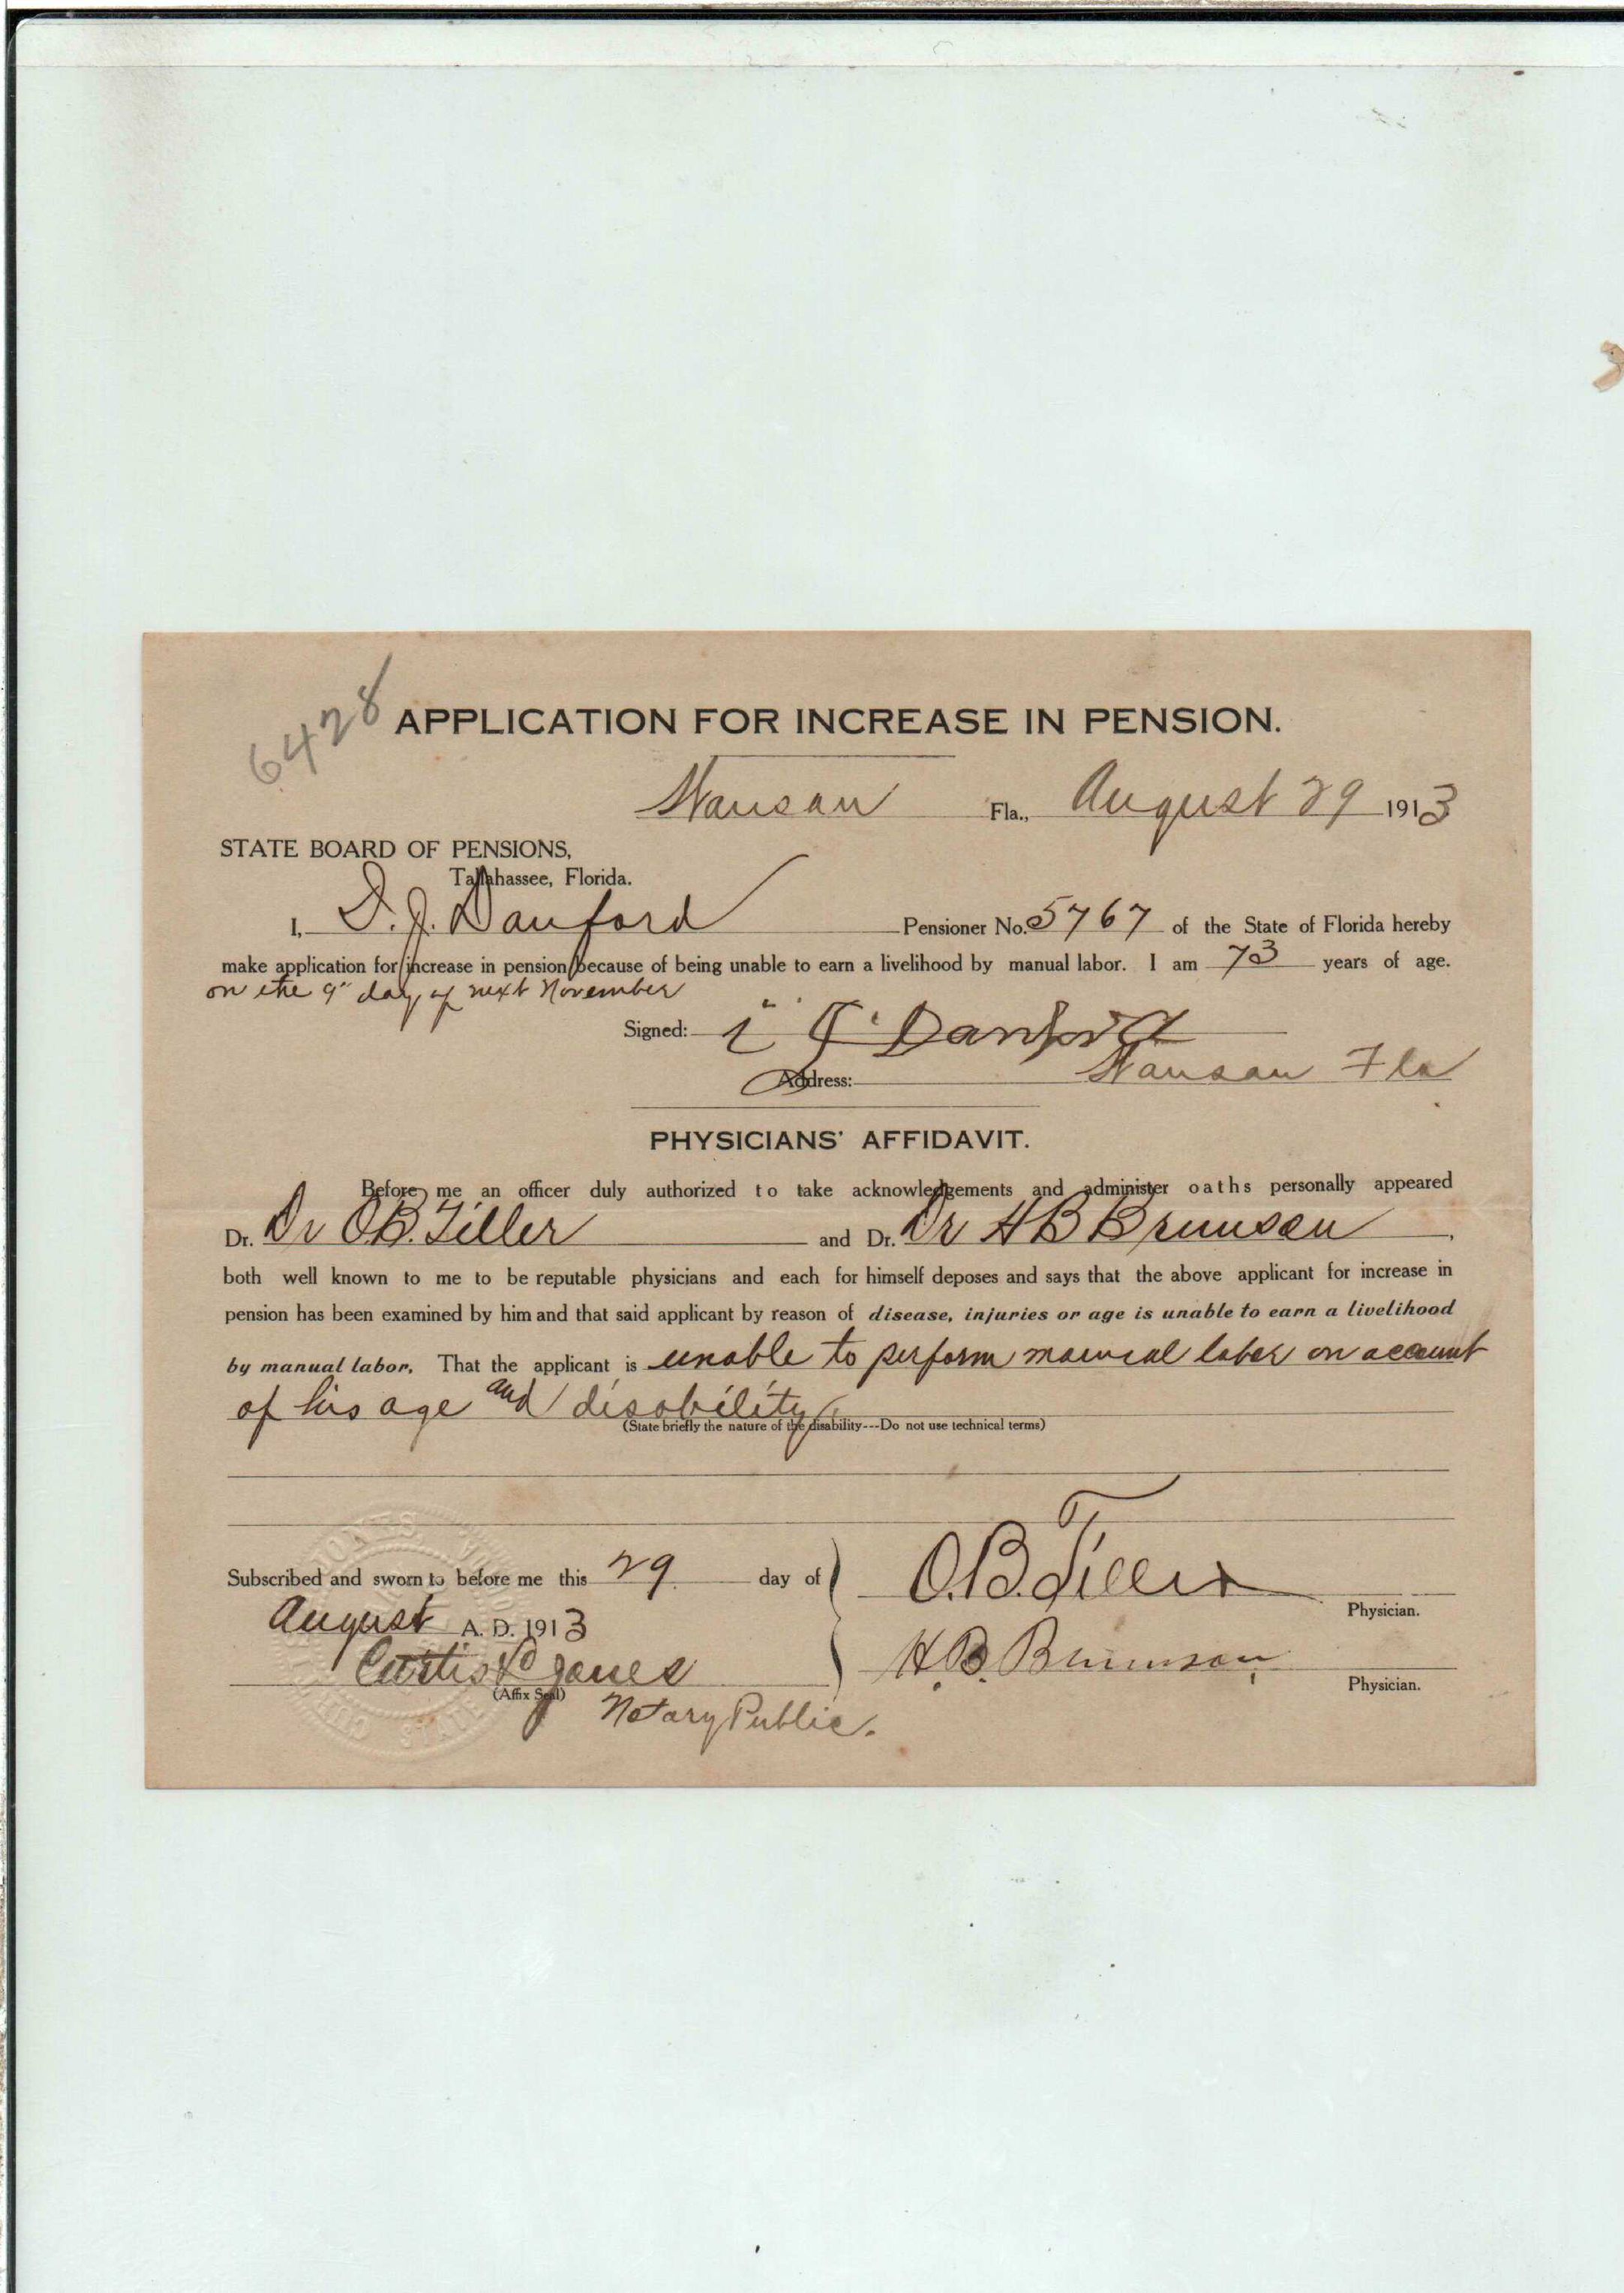 6428
APPLICATION FOR INCREASE IN PENSION.
Wausau Fla., August 29 1913
STATE BOARD OF PENSIONS,
Tallahassee, Florida.
I, I. J. Danford Pensioner No. 5767 of the State of Florida hereby
make application for increase in pension because of being unable to earn a livelihood by manual labor. I am 73 years of age.
on the 9" day of next November
Signed: i J Danford
Address: Wausau Fla
PHYSICIANS' AFFIDAVIT.
Before me an officer duly authorized to take acknowledgements and administer oaths personally appeared
Dr. Dr O.B. Tiller and Dr. Dr H B Brunson,
both well known to me to be reputable physicians and each for himself deposes and says that the above applicant for increase in
pension has been examined by him and that said applicant by reason of disease, injuries or age is unable to earn a livelihood
by manual labor. That the applicant is unable to perform manual labor on account
of his age and disability
(State briefly the nature of the disability---Do not use technical terms)
Subscribed and sworn to before me this 29 day of
O.B. Tiller
Physician.
August A. D. 1913
Curtis Jones
H.B. Brunson
Physician.
(Affix Seal)
Notary Public.